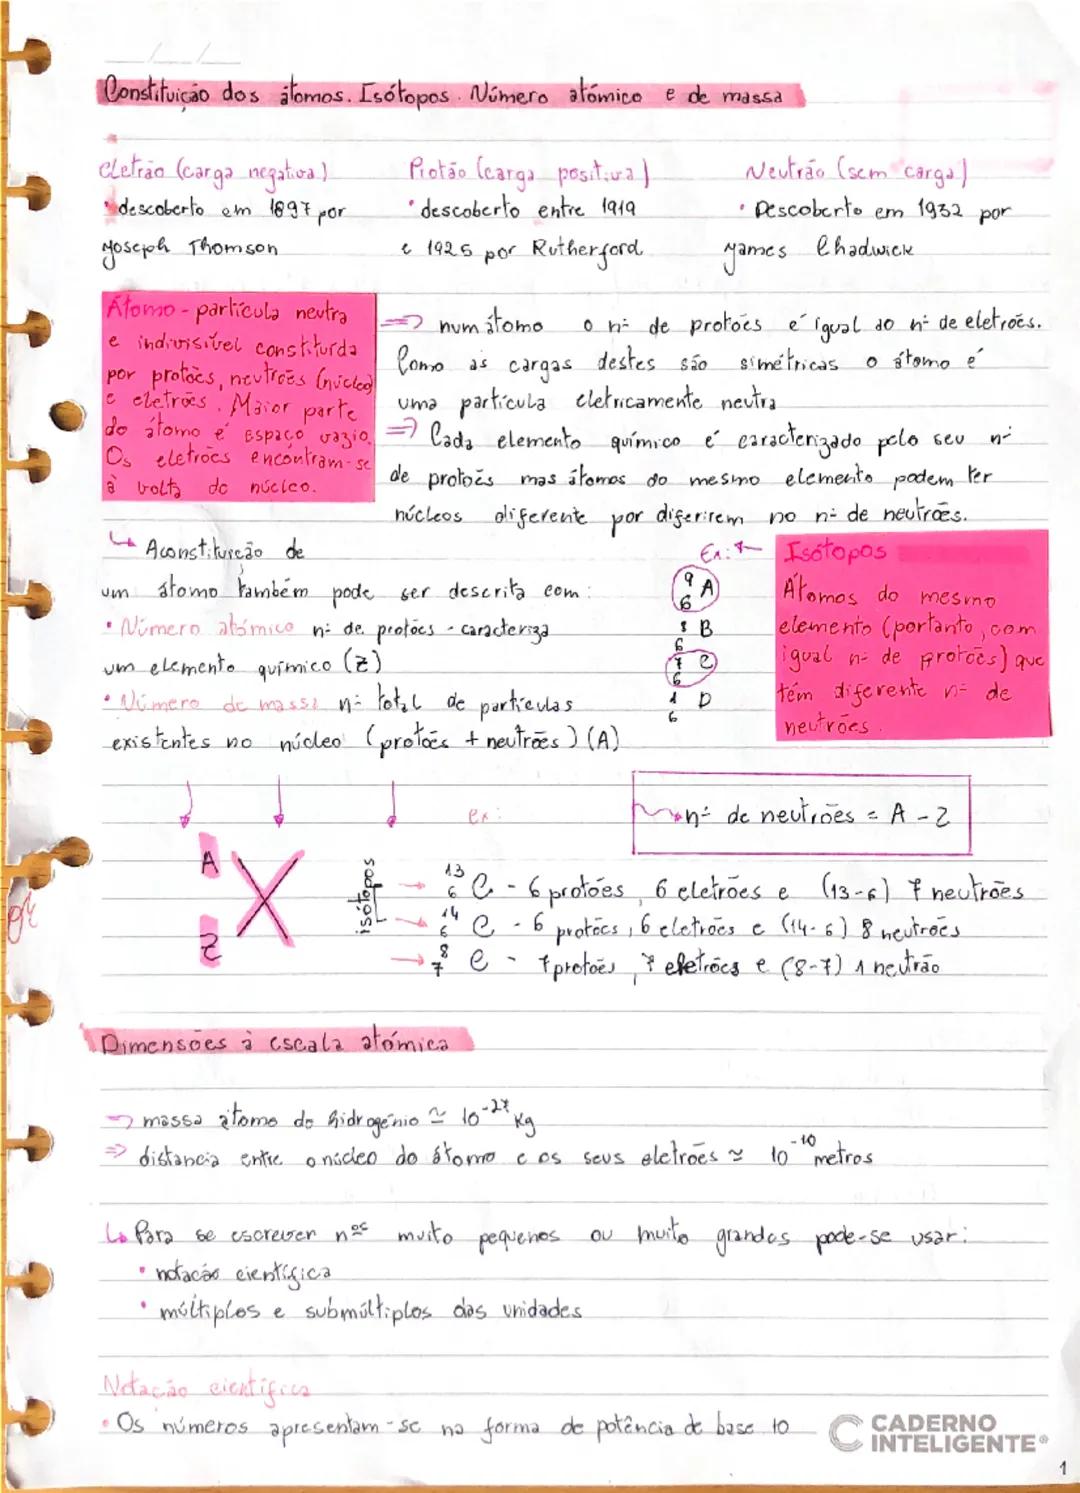 Constituição dos átomos. Isótopos. Número atómico e de massa
Eletrão (carga negativa)
• descoberto em 1897 por
Joseph Thomson
Protão (carga positiva)
• descoberto entre 1919
e 1925 por Rutherford
Neutrão (sem carga)
• Descoberto em 1932 por
James Chadwick
Átomo - partícula neutra
e indivisível constituída
por protões, neutrões (núcleo)
e eletrões. Maior parte
do átomo é espaço vazio.
Os eletrões encontram-se
à volta do núcleo.
⇒ num átomo o nº de protões é igual ao nº de eletrões.
Como as cargas destes são simétricas o átomo é
uma partícula eletricamente neutra
⇒ Cada elemento químico é caracterizado pelo seu nº
de protões mas átomos do mesmo elemento podem ter
núcleos diferente por diferirem no nº de neutrões.
↳ A constituição de
um átomo também pode ser descrita com:
• Número atómico nº de protões - caracteriza
um elemento químico (Z)
• Número de massa nº total de partículas
existentes no núcleo (protões + neutrões) (A)
Ex:
9 A
6
8 B
6
7 C
6
1 D
6
Isótopos
Átomos do mesmo
elemento (portanto, com
igual nº de protões) que
têm diferente nº de
neutrões.
nº de neutrões = A - Z
A
X
Z
ex:
isótopos
13
6 C - 6 protões, 6 eletrões e (13-6) 7 neutrões
14
6 C - 6 protões, 6 eletrões e (14-6) 8 neutrões
8
7 C - 7 protões, 7 eletrões e (8-7) 1 neutrão
Dimensões à escala atómica
⇒ massa átomo do hidrogénio ≃ 10⁻²⁷ kg
⇒ distancia entre o núcleo do átomo e os seus eletrões ≃ 10⁻¹⁰ metros
↳ Para se escrever nºs muito pequenos ou muito grandes pode-se usar:
• notação científica
• múltiplos e submúltiplos das unidades
Notação científica
• Os números apresentam-se na forma de potência de base 10
CADERNO
INTELIGENTE®
1